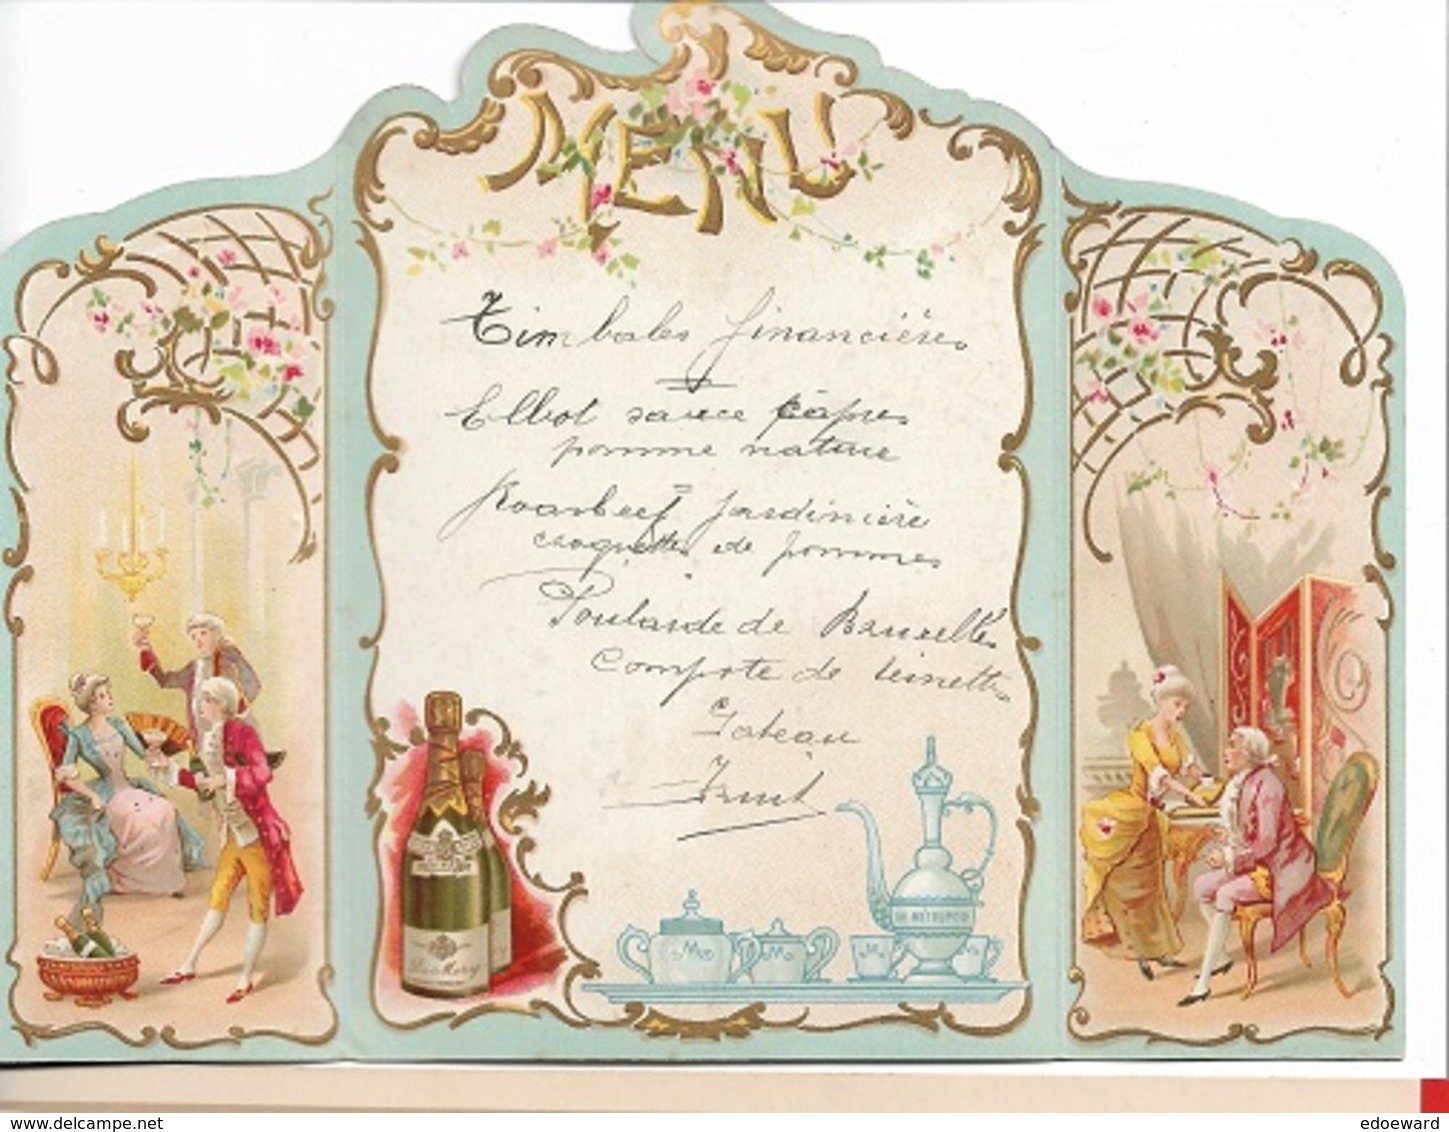 MENU
Timbales financières
Elbot sauce câpres
pomme nature
Roasbeef jardinière
croquettes de pommes
Poularde de Bruxelles
Compote de reinettes
Gateau
Fruit
LE METROPOLE
M M M M
www.delcampe.net
edoeward